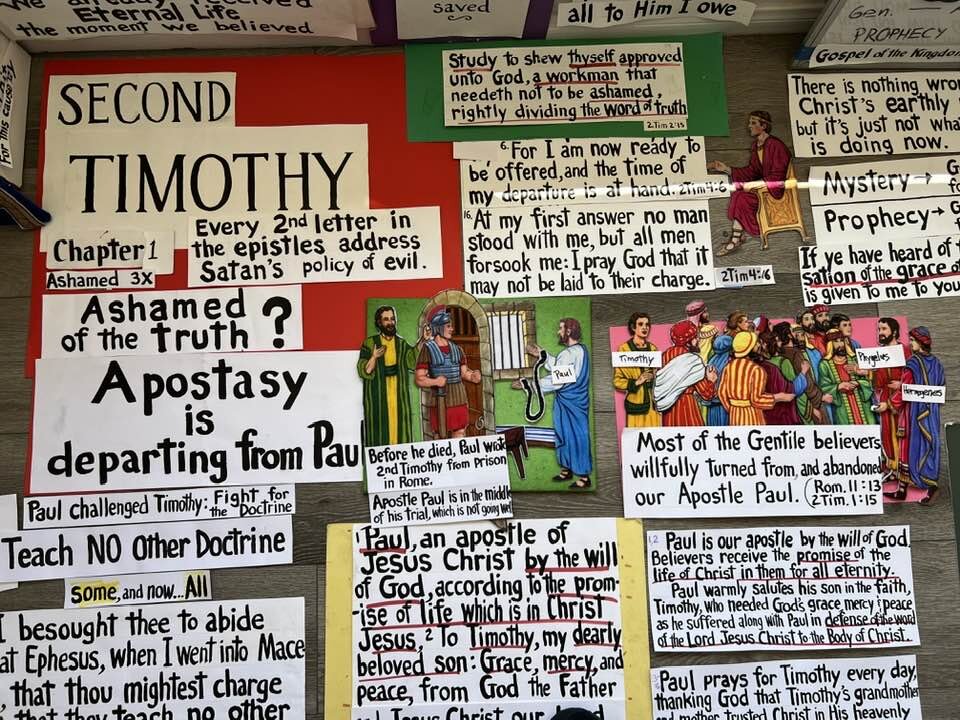 already received
Eternal Life
the moment we believed
saved
all to Him I owe
Gen.
PROPHECY
Gospel of the Kingdom
For this cause
SECOND
TIMOTHY
Chapter 1
Ashamed 3X
Every 2nd letter in
the epistles address
Satan's policy of evil.
Ashamed
of the truth ?
Apostasy
is
departing from Paul
Paul challenged Timothy: Fight for
the Doctrine
Teach NO Other Doctrine
some, and now... All
I besought thee to abide
at Ephesus, when I went into Mace
that thou mightest charge
that they teach no other
Study to shew thyself approved
unto God, a workman that
needeth not to be ashamed,
rightly dividing the word of truth
2Tim 2:15
6. For I am now ready to
be offered, and the time of
my departure is at hand. 2Tim 4:6
16. At my first answer no man
stood with me, but all men
forsook me: I pray God that it
may not be laid to their charge.
2Tim 4:16
Paul
Before he died, Paul wrote
2nd Timothy from prison
in Rome.
Apostle Paul is in the middle
of his trial, which is not going well
1 Paul, an apostle of
Jesus Christ by the will
of God, according to the prom-
ise of life which is in Christ
Jesus, 2 To Timothy, my dearly
beloved son: Grace, mercy, and
peace, from God the Father
and Jesus Christ our
There is nothing
Christ's earthly
but it's just not
is doing now.
Mystery →
Prophecy →
If ye have heard of
sation of the grace
is given to me to you
Timothy
Phygellus
Hermogenes
Most of the Gentile believers
willfully turned from, and abandoned
our Apostle Paul. (Rom. 11:13
2Tim. 1:15
1,2 Paul is our apostle by the will of God.
Believers receive the promise of the
life of Christ in them for all eternity.
Paul warmly salutes his son in the faith,
Timothy, who needed God's grace mercy & peace
as he suffered along with Paul in defense of the word
of the Lord Jesus Christ to the Body of Christ.
Paul prays for Timothy every day,
thanking God that Timothy's grandmother
and mother trusted Christ in His heavenly